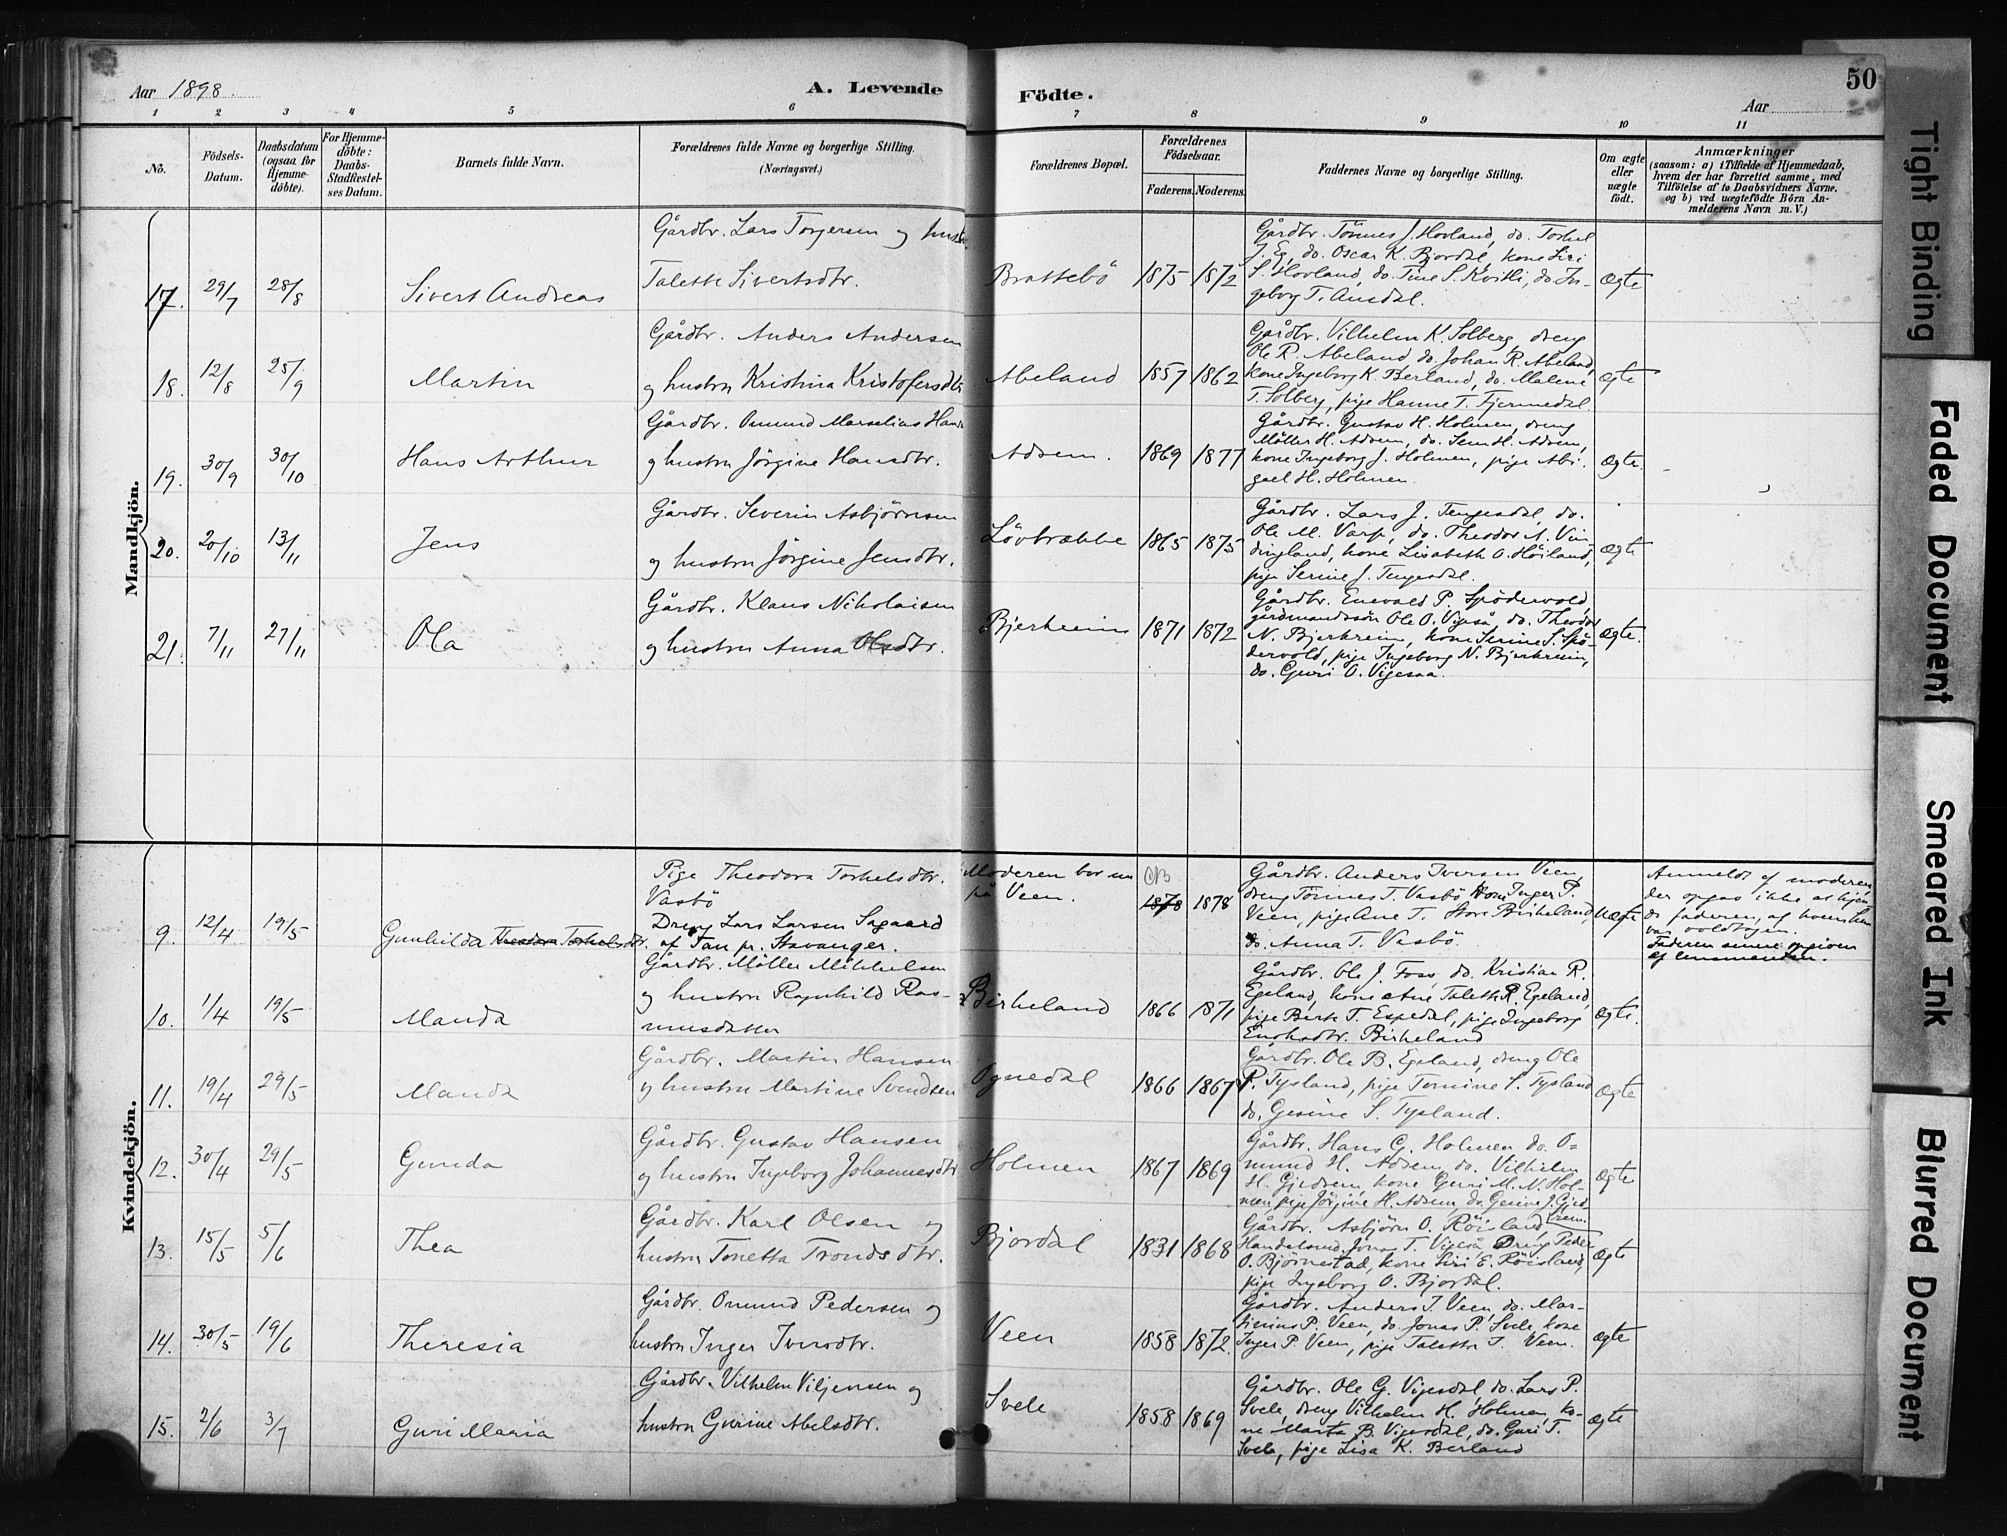 Aar 1898.
A. Levende
Födte.
Aar
50
1 2 3 4 5 6 7 8 9 10 11
No.
Födsels-
Datum.
Daabsdatum
(ogsaa for
Hjemme-
döbte).
For Hjemme-
döbte:
Daabs-
Stadfæstel-
ses Datum.
Barnets fulde Navn.
Forældrenes fulde Navne og borgerlige Stilling.
(Næringsvei.)
Forældrenes Bopæl.
Forældrenes
Födselsaar.
Faderens. Moderens.
Faddernes Navne og borgerlige Stilling.
Om ægte
eller
uægte
födt.
Anmærkninger
(saasom: a) i Tilfælde af Hjemmedaab,
hvem der har forrettet samme, med
Tilföielse af to Daabsvidners Navne.
og b) ved uægtefödte Börn An-
melderens Navn m. V.)
Mandkjön.
17. 29/7 28/8 Sivert Andreas
Gårdbr. Lars Torgersen og hustr.
Talette Sivertsdtr.
Brattebö 1875 1872
Gårdbr. Tönnes J. Hovland, do. Torkel
J. Eg, do. Oscar K. Bjordal, kone Siri
S. Hovland, do. Tine S. Kvitli, do. In-
geborg T. Amdal.
Ægte
18. 12/8 25/9 Martin
Gårdbr. Anders Andersen
og hustru Kristina Kristofersdtr
Abeland 1857 1862
Gårdbr. Vilhelm K. Solberg, dreng
Ole R. Abeland do. Johan R. Abeland,
kone Ingeborg K. Berland, do. Malene
T. Solberg, pige Hanne T. Fjermedal.
Ægte
19. 30/9 30/10 Hans Arthur
Gårdbr. Omund Marselius Hans
og hustru Jörgine Hansdtr.
Adsem. 1869 1877
Gårdbr. Gustav H. Holmen, dreng
Möller H. Adsem, do. Sem H. Adsem,
kone Ingeborg J. Holmen, pige Abi-
gael H. Holmen.
Ægte.
20. 20/10 13/11 Jens
Gårdbr. Severin Asbjörnsen
og hustru Jörgine Jensdtr.
Lövbrække 1865 1875
Gårdbr. Lars J. Tengesdal, do.
Ole M. Varp, do. Theodor A. Vin
dingland, kone Lisabeth O. Höiland,
pige Serine J. Tengesdal.
Ægte
21. 7/11 27/11 Ola
Gårdbr. Klaus Nikolaisen
og hustru Anna Olsdtr.
Bjerkreim 1871 1872
Gårdbr. Enevald P. Spödervold,
gårdmandssön Ole O. Vigeså, do. Theodor
N. Bjerkreim, kone Serine S. Spö-
dervold, pige Ingeborg N. Bjerkreim,
do. Guri O. Vigesaa.
Ægte.
Kvindekjön.
9. 12/4 19/5 Gunhilda Theodora Torkelsdtr.
Pige Theodora Torkelsdtr.
Vasbö
Dreng Lars Larsen Sagaard
af Tau pr. Stavanger.
Moderen bor nu
på Veen.
1878 1878
Gårdbr. Anders Iversen Veen,
dreng Tönnes T. Vasbö kone Inger P.
Veen, pige Ane T. Store Birkeland,
do. Anna T. Vasbö.
Uægte
Anmeldt af moderen,
der opgav ikke at kjen
de faderen, af hvem hun
var voldtagen.
Faderen senere opgiven
af lensmanden.
10. 1/4 19/5 Manda
Gårdbr. Möller Mikkelsen
og hustru Ragnhild Ras-
musdatter
Birkeland 1866 1871
Gårdbr. Ole J. Foss, do. Kristian R.
Egeland, kone Ane Talette R. Egeland,
pige Berte T. Espedal, pige Ingeborg
Enoksdtr. Birkeland
Ægte.
11. 19/4 29/5 Manda
Gårdbr. Martin Hansen
og hustru Martine Svendsen
Ognedal 1866 1867
Gårdbr. Ole B. Egeland, dreng Ole
P. Tysland, pige Tomine S. Tysland
do. Gesine S. Tysland.
Ægte
12. 30/4 29/5 Gunda
Gårdbr. Gustav Hansen
og hustru Ingeborg Johannesdtr
Holmen 1867 1869
Gårdbr. Hans G. Holmen do. O-
mund H. Adsem, do. Vilhelm
H. Gjedrem, kone Guri M. N. Hol-
men, pige Jörgine H. Adsem do. Gerine J. Gjed
rem.
Ægte
13. 15/5 5/6 Thea
Gårdbr. Karl Olsen og
hustru Tonetta Trondsdtr.
Bjordal 1831 1868
Gårdbr. Asbjörn O. Röisland,
Handelsmd. Jonas T. Vigeså, Dreng Peder
O. Björnestad, kone Siri E. Röisland,
pige Ingeborg O. Bjordal.
Ægte
14. 30/5 19/6 Theresia
Gårdbr. Omund Pedersen og
hustru Inger Iversdtr.
Veen 1858 1872.
Gårdbr. Anders I. Veen, do. Mar-
tinius P. Veen, do. Jonas P. Svele, kone
Inger P. Veen, pige Taletta I. Veen.
Ægte
15. 2/6 3/7 Guri Maria
Gårdbr. Vilhelm Viljensen og
hustru Gurine Abelsdtr.
Svele 1858 1869
Gårdbr. Ole G. Vigesdal, do. Lars P.
Svele, dreng Vilhelm H. Holmen, ko-
ne Marta B. Vigesdal, do. Guri T.
Svela, pige Lisa K. Berland
Ægte
Tight Binding
Faded Document
Smeared Ink
Blurred Document